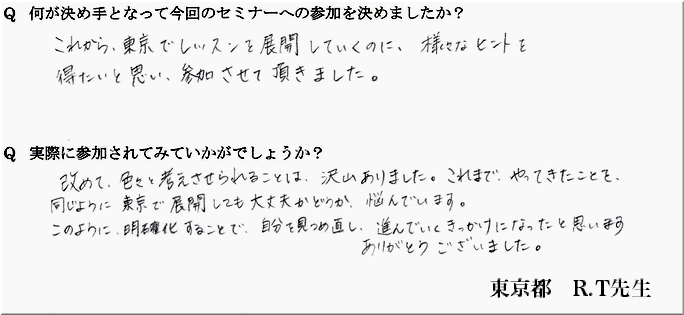 Q 何が決め手となって今回のセミナーへの参加を決めましたか？
これから、東京でレッスンを展開していくのに、様々なヒントを
得たいと思い、参加させて頂きました。
Q 実際に参加されてみていかがでしょうか？
改めて、色々と考えさせられることは、沢山ありました。これまで、やってきたことを、
同じように東京で展開しても大丈夫かどうか、悩んでいます。
このように、明確化することで、自分を見つめ直し、進んでいくきっかけになったと思います
ありがとうございました。
東京都 R.T先生